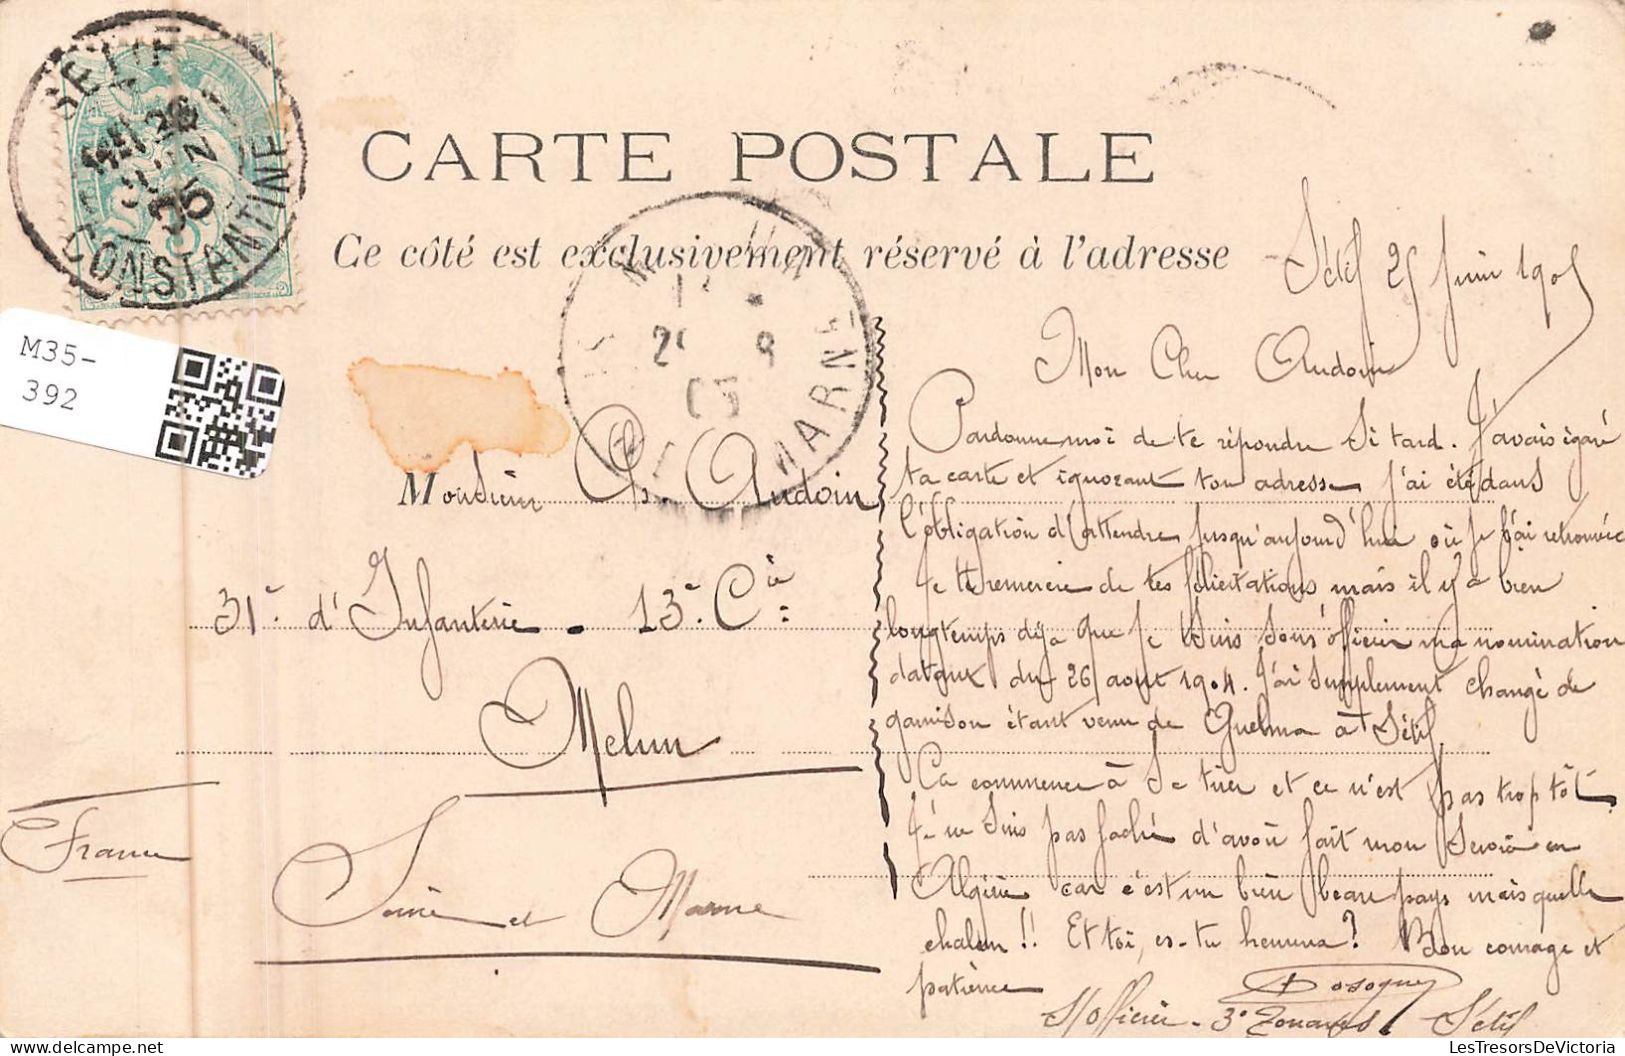 SETIF
CONSTANTINE
M35-
392
CARTE POSTALE
Ce côté est exclusivement réservé à l'adresse
MARNE
Monsieur Ch. Audoin
31e d'Infanterie - 13e Cie
Melun
Seine et Marne
France
Sétif 25 Juin 1905
Mon Cher Audoin
Pardonne moi de te répondre si tard. J'avais égaré
ta carte et ignorant ton adresse j'ai été dans
l'obligation d'attendre jusqu'aujourd'hui où je l'ai retrouvée
Je te remercie de tes félicitations mais il y a bien
longtemps déja que je suis sous'officier ma nomination
datant du 26 aout 1904. J'ai simplement changé de
garnison étant venu de Guelma à Sétif
Ca commence à se tirer et ce n'est pas trop tôt.
Je ne suis pas faché d'avoir fait mon service en
Algérie car c'est un bien beau pays mais quelle
chaleur !! Et toi, es-tu heureux ? Bon courage et
patience
S/Officier - 3e Zouaves Sétif
www.LesTresorsDeVictoria.com